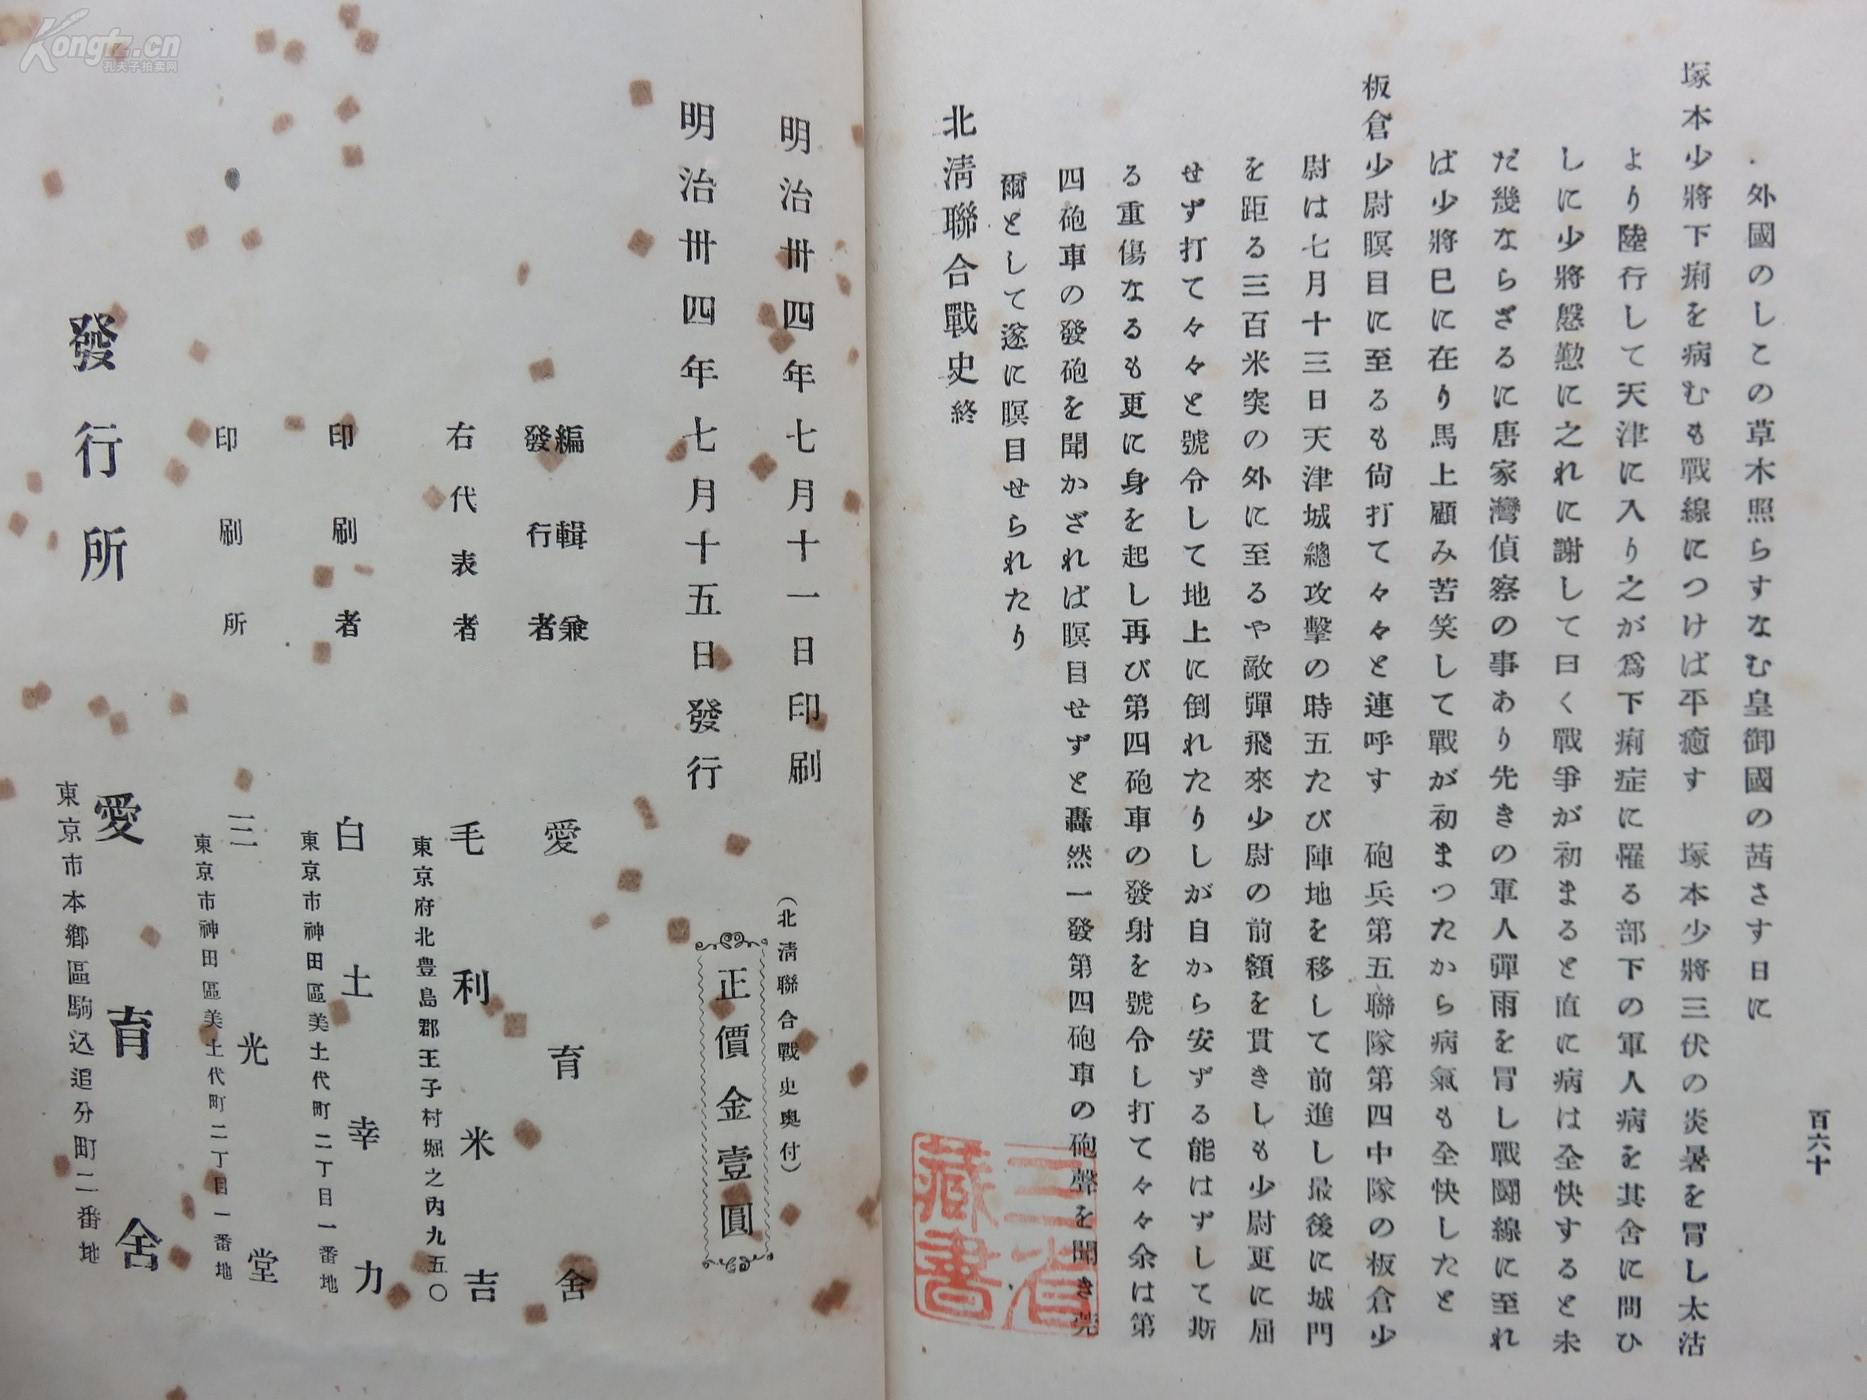 百六十
外國のしこの草木照らすなむ皇御國の茜さす日に
塚本少將下痢を病むも戰線につけば平癒す　塚本少將三伏の炎暑を冒し太沽
より陸行して天津に入り之が爲下痢症に罹る部下の軍人病を其舍に問ひ
しに少將慇懃に之れに謝して曰く戰爭が初まると直に病は全快すると未
だ幾ならざるに唐家灣偵察の事あり先きの軍人彈雨を冒し戰鬪線に至れ
ば少將已に在り馬上顧み苦笑して戰が初まつたから病氣も全快したと
板倉少尉瞑目に至るも尙打て々々と連呼す　砲兵第五聯隊第四中隊の板倉少
尉は七月十三日天津城總攻擊の時五たび陣地を移して前進し最後に城門
を距る三百米突の外に至るや敵彈飛來少尉の前額を貫きしも少尉更に屈
せず打て々々と號令して地上に倒れたりしが自から安ずる能はずして斯
る重傷なるも更に身を起し再び第四砲車の發射を號令し打て々々余は第
四砲車の發砲を聞かざれば瞑目せずと轟然一發第四砲車の砲聲を聞き莞
爾として遂に瞑目せられたり
北淸聯合戰史終
三省
藏書
明治卅四年七月十一日印刷
明治卅四年七月十五日發行
（北淸聯合戰史奧付）
正價金壹圓
編輯兼
發行者
愛育舍
右代表者
毛利米吉
東京府北豊島郡王子村堀之內九五〇
印刷者
白土幸力
東京市神田區美土代町二丁目一番地
印刷所
三光堂
東京市神田區美土代町二丁目一番地
發行所
愛育舍
東京市本鄉區駒込追分町二番地
Kongfz.cn
孔夫子拍卖网